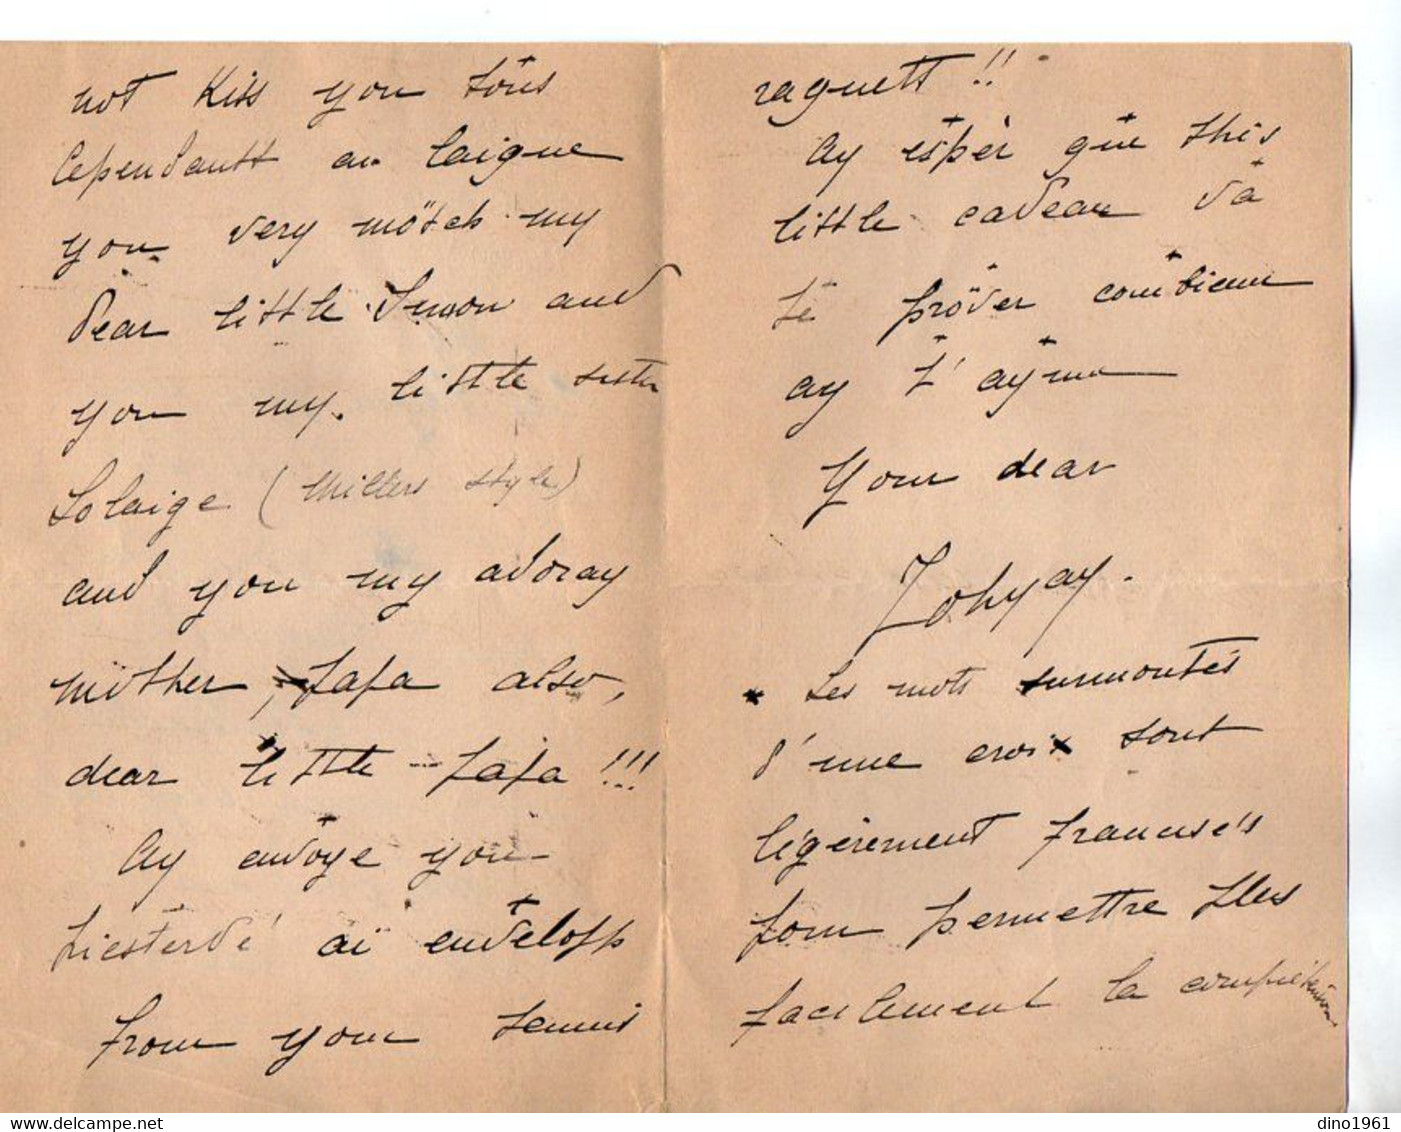 not Kiss you töus
Cependantt au laigue
you very mötch my
dear little Simon and
you my little sister
Solaige (Millers style)
and you my adoray
möther, Fafa also,
dear little Fafa !!!
Ay envoye you
hiesterdé aï envelopp
from your tennis
raguett !!
Ay espèr qüe this
little cadeau va
té pröver combienn
ay t'aÿme
Your dear
Zohyay.
* Les mots surmontés
d'une croix sont
légèrement francisés
pour permettre plus
facilement la compréhension
dino1961